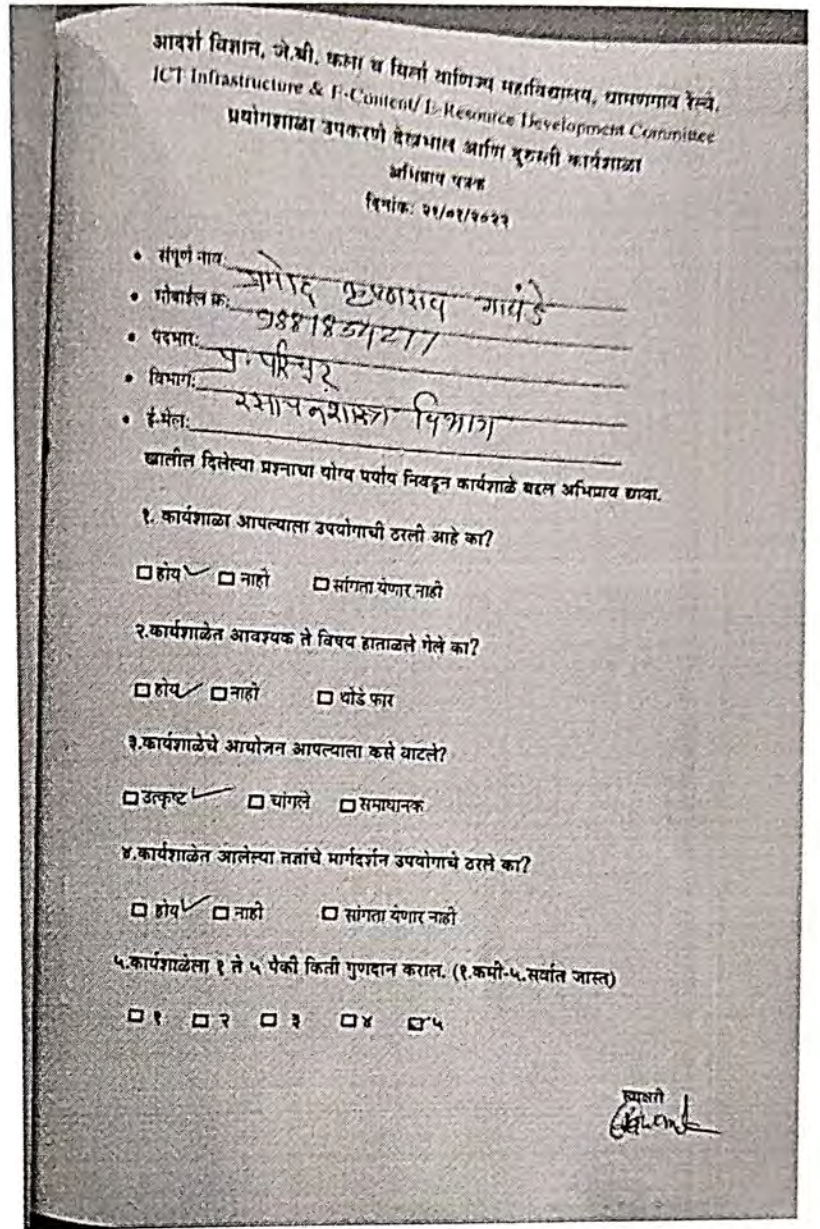 आदर्श विज्ञान, जे.बी. कला व बिर्ला वाणिज्य महाविद्यालय, धामणगाव रेल्वे.
ICT Infrastructure & E-Content/ E-Resource Development Committee
प्रयोगशाळा उपकरणे देखभाल आणि दुरुस्ती कार्यशाळा
अभिप्राय पत्रक
दिनांक: २१/०१/२०२२
• संपूर्ण नाव: प्रमोद कृष्णराव गायंडे
• मोबाईल क्र:
• पदभार: प्र. परिचर
• विभाग: रसायनशास्त्र विभाग
• ई-मेल:
खालील दिलेल्या प्रश्नाचा योग्य पर्याय निवडून कार्यशाळे बद्दल अभिप्राय द्यावा.
१. कार्यशाळा आपल्याला उपयोगाची ठरली आहे का?
होय नाही सांगता येणार नाही
२.कार्यशाळेत आवश्यक ते विषय हाताळले गेले का?
होय नाही थोडे फार
३.कार्यशाळेचे आयोजन आपल्याला कसे वाटले?
उत्कृष्ट चांगले समाधानक
४.कार्यशाळेत आलेल्या तज्ञांचे मार्गदर्शन उपयोगाचे ठरले का?
होय नाही सांगता येणार नाही
५.कार्यशाळेला १ ते ५ पैकी किती गुणदान कराल. (१.कमी-५.सर्वात जास्त)
१ २ ३ ४ ५
स्वाक्षरी